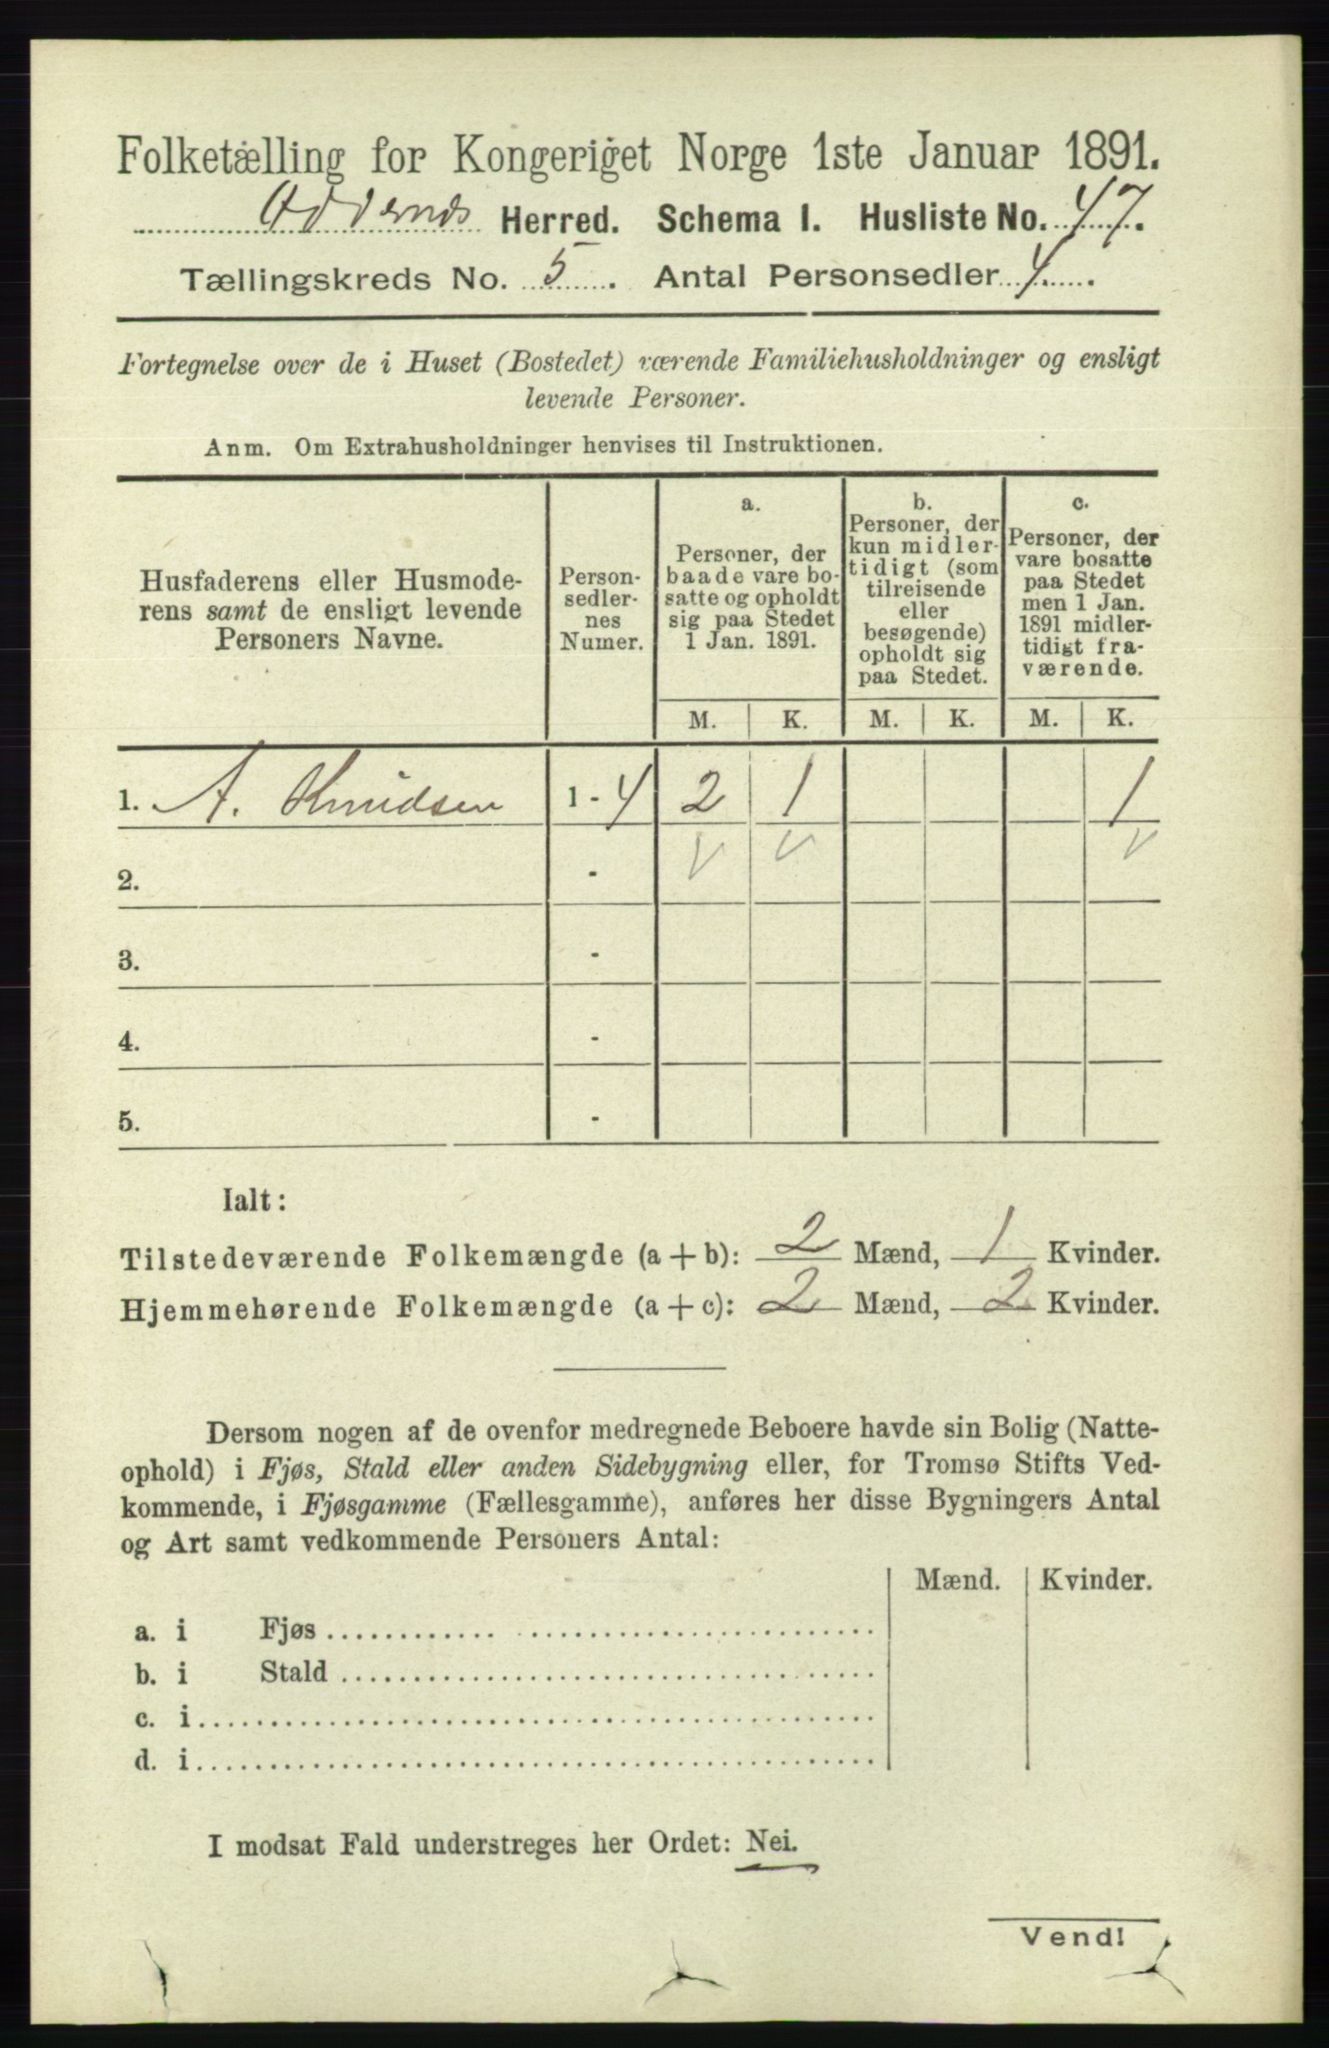 Folketælling for Kongeriget Norge 1ste Januar 1891.
Oddernes Herred. Schema I. Husliste No. 47.
Tællingskreds No. 5. Antal Personsedler 4.
Fortegnelse over de i Huset (Bostedet) værende Familiehusholdninger og ensligt
levende Personer.
Anm. Om Extrahusholdninger henvises til Instruktionen.
Husfaderens eller Husmode-
rens samt de ensligt levende
Personers Navne.
Person-
sedler-
nes
Numer.
a.
Personer, der
baade vare bo-
satte og opholdt
sig paa Stedet
1 Jan. 1891.
b.
Personer, der
kun midler-
tidigt (som
tilreisende
eller
besøgende)
opholdt sig
paa Stedet.
c.
Personer, der
vare bosatte
paa Stedet
men 1 Jan.
1891 midler-
tidigt fra-
værende.
M. K. M. K. M. K.
1. A. Knudsen 1 - 4 2 1 1
2. - V V V
3. -
4. -
5. -
Ialt:
Tilstedeværende Folkemængde (a + b): 2 Mænd, 1 Kvinder.
Hjemmehørende Folkemængde (a + c): 2 Mænd, 2 Kvinder.
Dersom nogen af de ovenfor medregnede Beboere havde sin Bolig (Natte-
ophold) i Fjøs, Stald eller anden Sidebygning eller, for Tromsø Stifts Ved-
kommende, i Fjøsgamme (Fællesgamme), anføres her disse Bygningers Antal
og Art samt vedkommende Personers Antal:
Mænd. Kvinder.
a. i Fjøs
b. i Stald
c. i
d. i
I modsat Fald understreges her Ordet: Nei.
Vend!